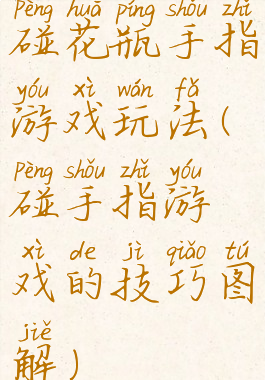 pèng huā píng shǒu zhǐ
碰花瓶手指
yóu xì wán fǎ
游戏玩法(
pèng shǒu zhǐ yóu
碰手指游
xì de jì qiǎo tú
戏的技巧图
jiě
解)